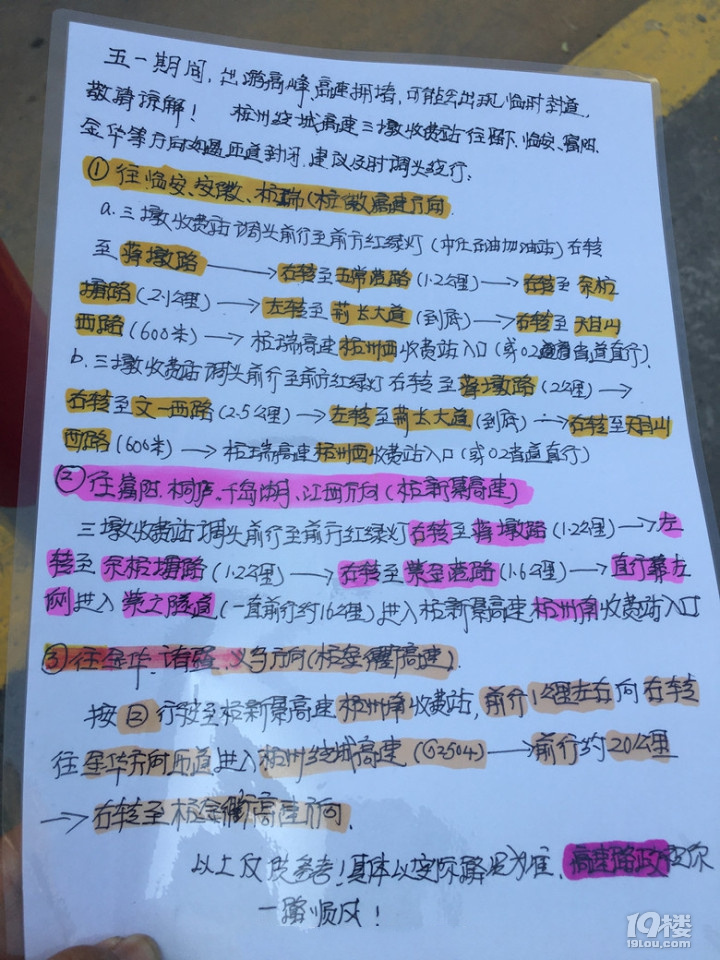 五一期间,出游高峰、高速拥堵,可能会出现临时封道,
敬请谅解! 杭州绕城高速三墩收费站往留下、临安、富阳、
金华等方向如遇匝道封闭,建议及时调头绕行:
①往临安、安徽、杭瑞(杭徽高速)方向
a.三墩收费站调头前行至前方红绿灯(中化石油加油站)右转
至蒋墩路→右转至五常港路(1.2公里)→右转至余杭
塘路(2.1公里)→左转至荆长大道(到底)→右转至天目山
西路(600米)→杭瑞高速杭州西收费站入口(或02省道直行).
b.三墩收费站调头前行至前方红绿灯右转至蒋墩路(2公里)→
右转至文一西路(2.5公里)→左转至荆长大道(到底)→右转至天目山
西路(600米)→杭瑞高速杭州西收费站入口(或02省道直行)
②往富阳、桐庐、千岛湖、江西方向(杭新景高速)
三墩收费站调头前行至前方红绿灯右转至蒋墩路(1.2公里)→左
转至余杭塘路(1.2公里)→右转至紫金港路(1.6公里)→直行靠左
侧进入紫之隧道(一直前行约16公里)进入杭新景高速杭州南收费站入口
③往金华、诸暨、义乌方向(杭金衢高速).
按②行驶至杭新景高速杭州南收费站,前行1公里左右向右转
往金华方向匝道进入杭州绕城高速(G2504)→前行约20公里
→右转至杭金衢高速方向.
以上仅供参考!具体以实际路况为准、高速路政祝你
一路顺风!
19楼
19lou.com